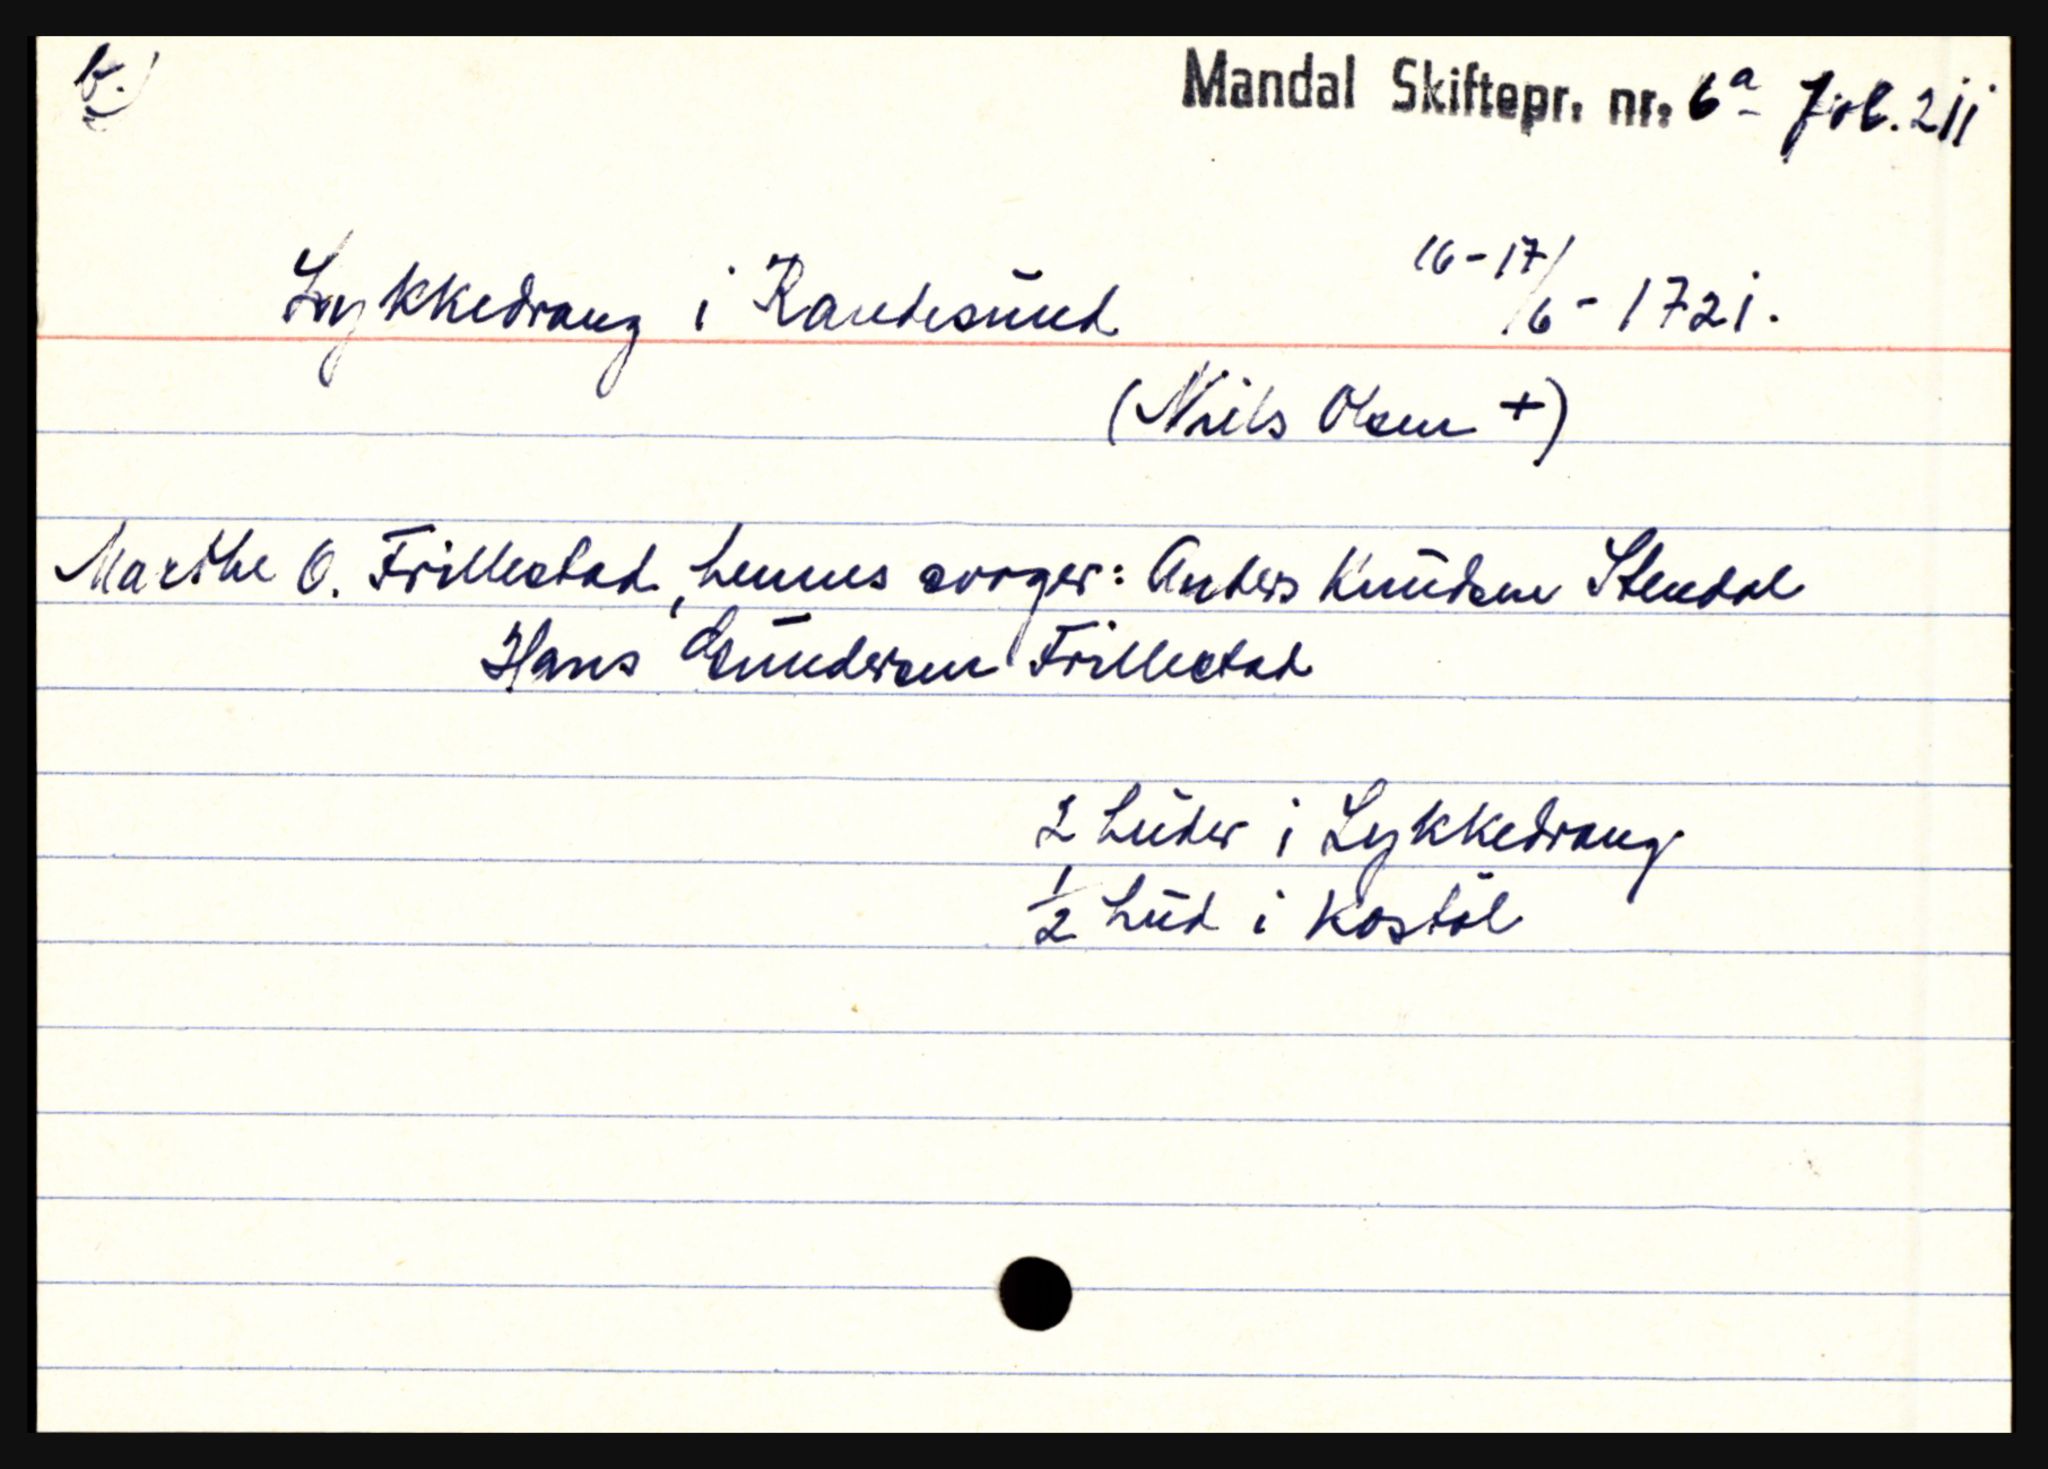 b.)
Mandal Skiftepr. nr. 6a fol. 211
Lykkedrang i Randesund 16-17/6-1721.
(Niels Olsen +)
Marthe O. Frillestad, hennes svoger: Anders Knudsen Stendal
Hans Gundersen Frillestad
2 huder i Lykkedrang
1/2 hud i Kostöl